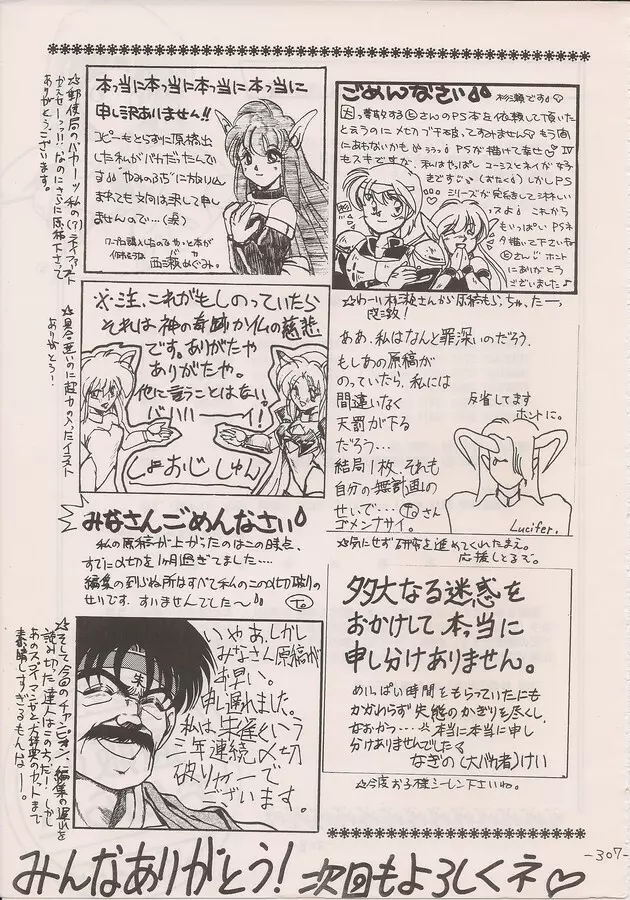 本っ当に本っ当に本っ当に本っ当に
申し訳ありません!!
コピーもとらずに原稿出
した私がバカだったんで
す "やみのふち"に放りこ
まれても文句は決して申し
ませんので…(涙)
西瀬めぐみ.
ごめんなさい
さんのPS本を依頼して頂いた
と言うのにメチャクチャ本当、すみません♡もう間に
あわないかも PSが描けて幸せ♡IV
もスキですが、私はやっぱし ユーシスとネイが好
きです (おたく)しかしPS
シリーズが完結をして淋しい
スよ これから
もいっぱいPSネ
タ描いて下さいね
さん ホント
にありがとう
ございました♪
☆わーい 杉瀬さんから原稿もらっちゃったーっ
☆郵便局のバカーッ 私の(?)ラストファースト
かえせーっ!!なのにさらに原稿下さって
ありがとうございます。
※注、これがもしのっていたら
それは神の奇跡か仏の慈悲
です。ありがたや
ありがたや。
他に言うことはない。
ババハーーイ!
しょおじ しゅん
☆具合悪いのに超力の入ったイラスト
ありがとう!
ああ、私はなんと罪深いのだろう.
もしあの原稿が
のっていたら、私には
間違いなく
天罰が下る
だろう…
結局1枚、それも
自分の無計画の
せいで… さん
ゴメンナサイ。
反省してます
ホントに。
Lucifer.
☆気にせず研究を進めてくれたまえ。
応援しとるぞ。
みなさんごめんなさい
私の原稿が上がったのはこの時点、
すでに〆切を1ヶ月過ぎてました…
編集の到らぬ所はすべて私のこの〆切破りの
せいです. すいませんでした〜
多大なる迷惑を
おかけして 本当に
申し分けありません。
めいっぱい時間をもらっていたにも
かかわらず 失態のかぎりを尽くし.
なおかつ… 本当に本当に申し
分けありませんでした
なぎの(大バカ者)けい
☆今度お子様シーレン下さいね。
朱
いやあ、しかし
みなさん原稿が
早い。
申し遅れました。
私は朱雀という
三年連続〆切
破りヤローで
ございます。
☆そして今回のチャンピオン、編集の遅れを
読み切った達人はこの方だ!しかし
あのスゴイマンガと大辞典のカットまで
素晴しすぎるもんなー。
みんなありがとう! 次回もよろしくネ♡
-307-